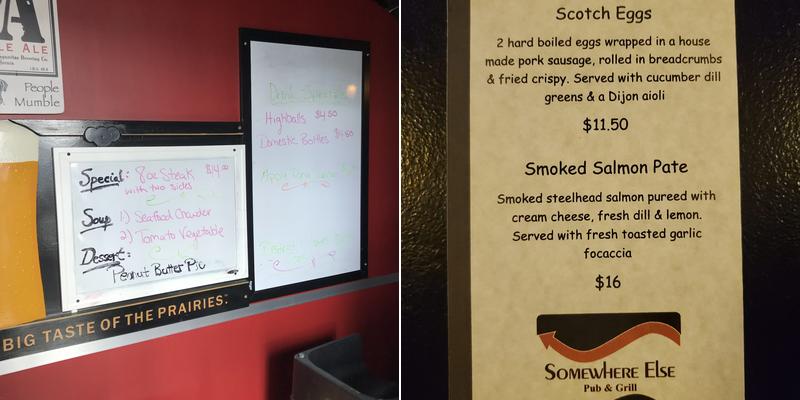 A
LE ALE
People
Mumble
Special: 8oz Steak $14.00
with two sides
Soup 1) Seafood Chowder
2) Tomato Vegetable
Dessert:
Peanut Butter Pie
BIG TASTE OF THE PRAIRIES.
Highballs $4.50
Domestic Bottles
Scotch Eggs
2 hard boiled eggs wrapped in a house
made pork sausage, rolled in breadcrumbs
& fried crispy. Served with cucumber dill
greens & a Dijon aioli
$11.50
Smoked Salmon Pate
Smoked steelhead salmon pureed with
cream cheese, fresh dill & lemon.
Served with fresh toasted garlic
focaccia
$16
SOMEWHERE ELSE
Pub & Grill